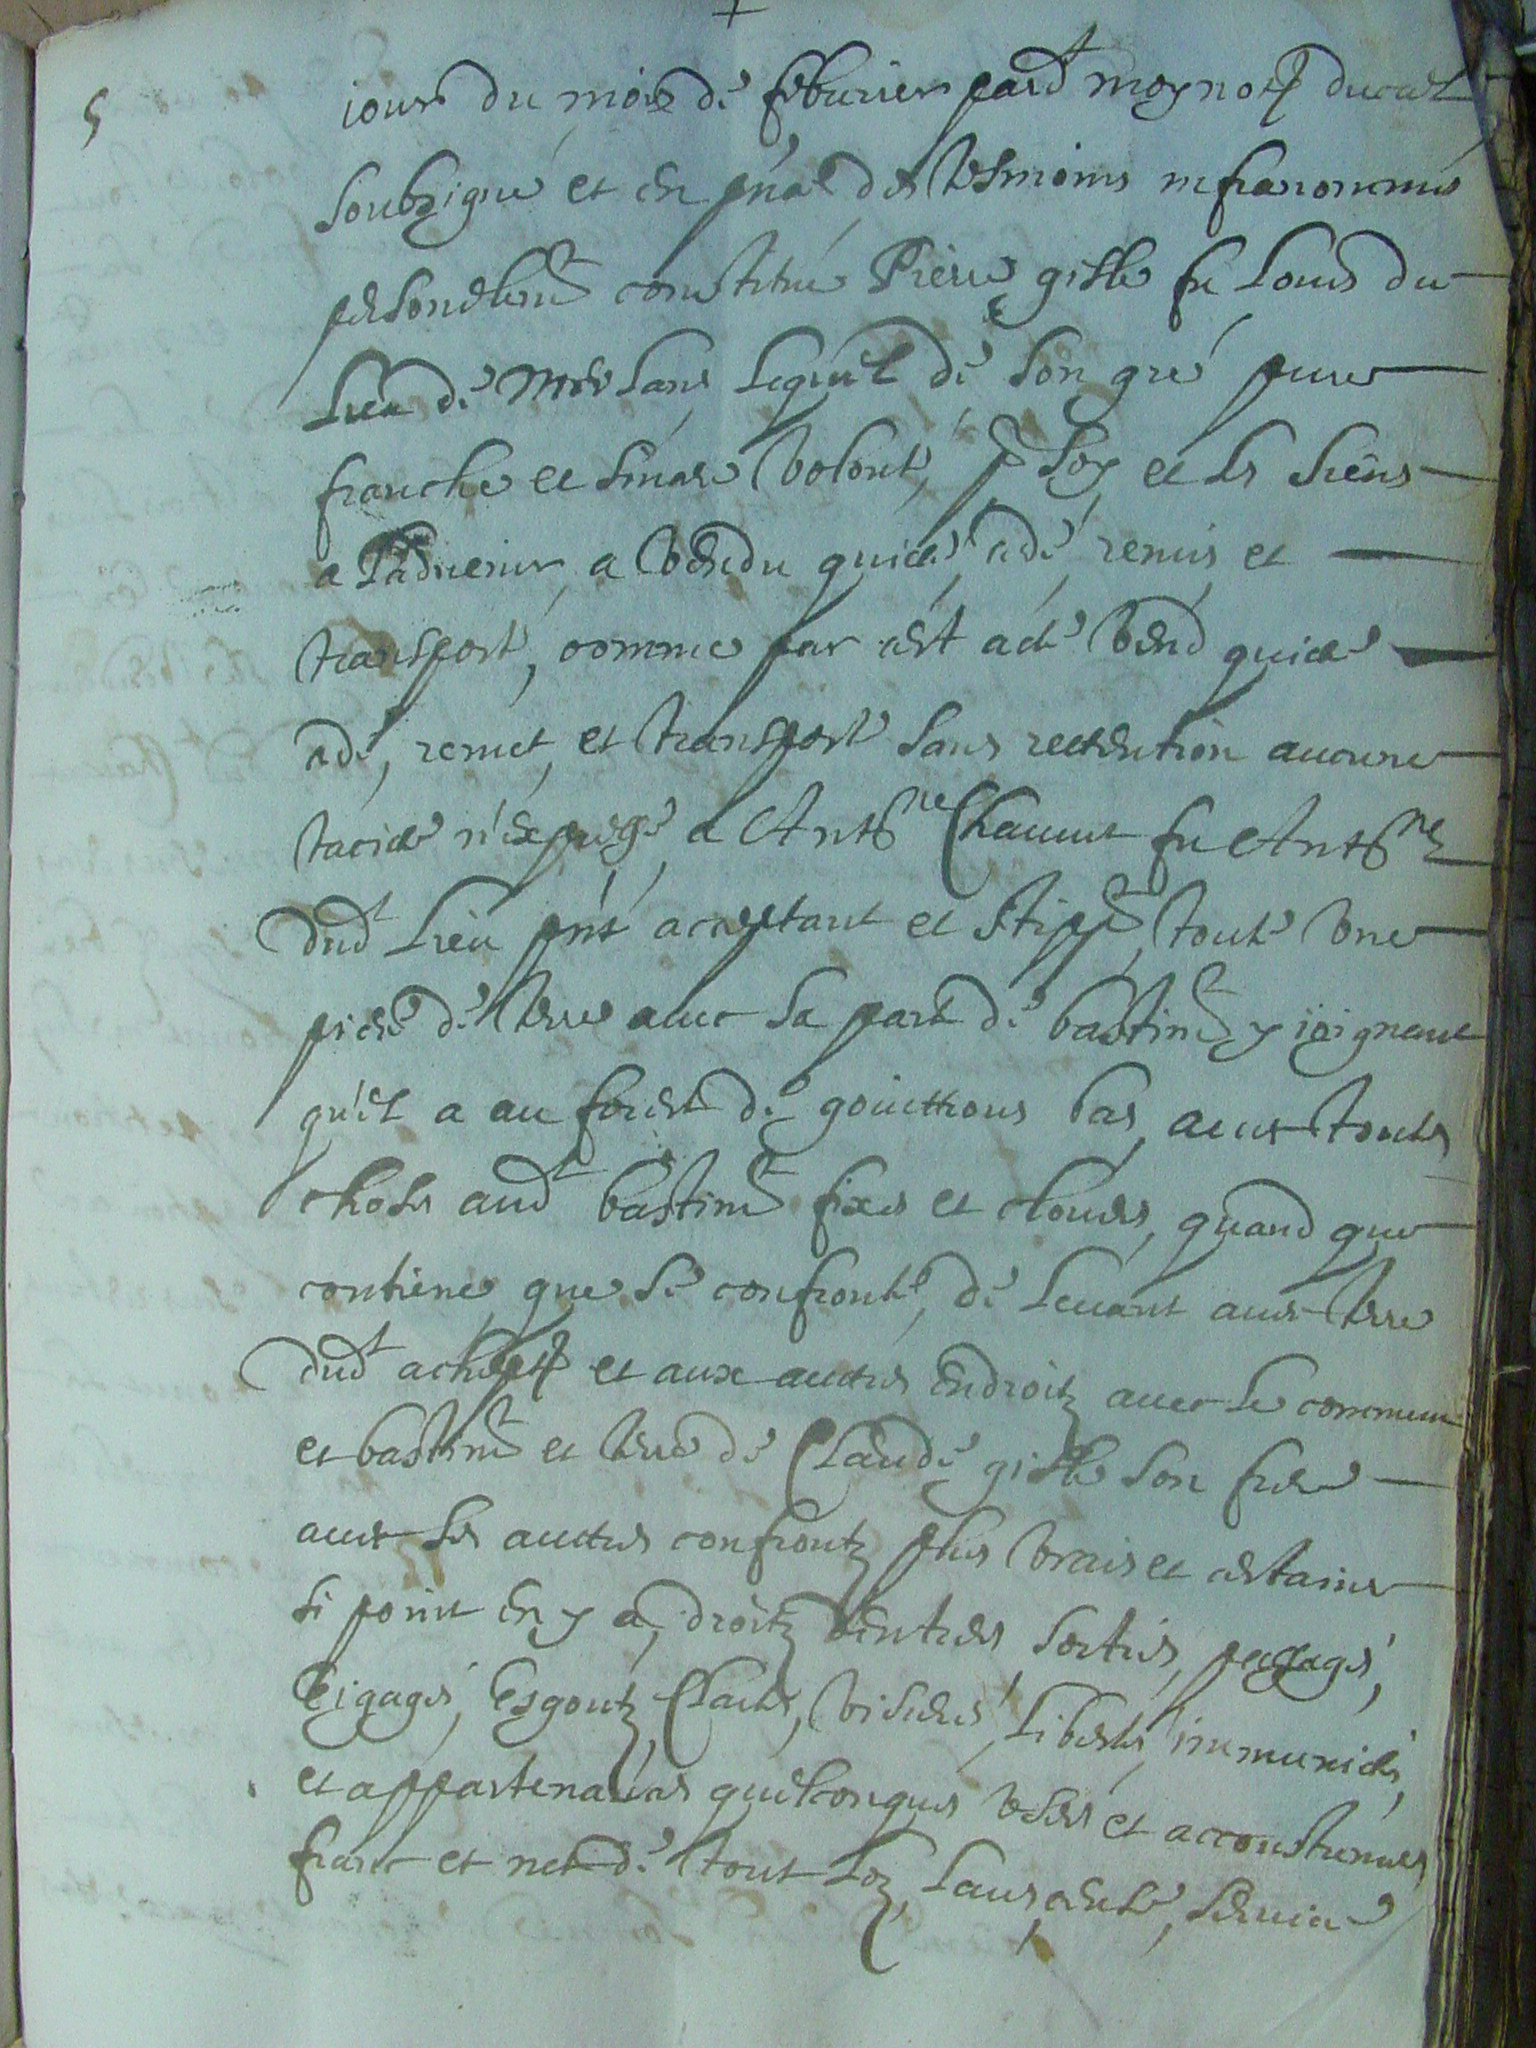 5
iour du mois de feburier pard moy not ducal
soubzigné et en pnce des tesmoins infranommés
personelemt constitué Pierre gille fu Louis du
Lieu de Lequel de son gré pure
franche et sincere volonté, p soy et les siens
a l'advenir, a vendu quicté, cedé, remis, et
transporté, comme par cest acte vend quicte
cede, remet, et transporte sans rectention aucune
tacite n'expresse a Anthne Chauut fu Anthne
dudt Lieu pnt acceptant et stippt, toute vne
piece de terre auec sa part de bastimt y ioignant
qu'il a au forest de gouittrous bas, auec toutes
choses audt bastimt fixes et cloues, quand que
contiene, que se confronte, de Leuant auec terre
dudt achept et aux autres endroitz auec le commun
et bastimt et terre de Claude gille son frere
auec les autres confrontz plus vrais et certains
si point en y a, droitz d'entrees, sorties, passages,
Eigages, Esgoutz, Clartes, visuës, Libertes, immunictés,
et appartenances quelconques vsees et accoustumees
franc et net de tout Loz, Laus, cense, seruice